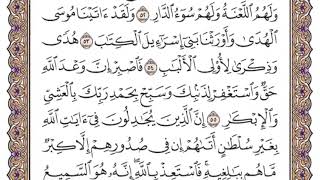 وَلَهُمُ ٱللَّعْنَةُ وَلَهُمْ سُوٓءُ ٱلدَّارِ ٥٢ وَلَقَدْ ءَاتَيْنَا مُوسَى
ٱلْهُدَىٰ وَأَوْرَثْنَا بَنِىٓ إِسْرَٰٓءِيلَ ٱلْكِتَٰبَ ٥٣ هُدًى
وَذِكْرَىٰ لِأُو۟لِى ٱلْأَلْبَٰبِ ٥٤ فَٱصْبِرْ إِنَّ وَعْدَ ٱللَّهِ
حَقٌّ وَٱسْتَغْفِرْ لِذَنۢبِكَ وَسَبِّحْ بِحَمْدِ رَبِّكَ بِٱلْعَشِىِّ
وَٱلْإِبْكَٰرِ ٥٥ إِنَّ ٱلَّذِينَ يُجَٰدِلُونَ فِىٓ ءَايَٰتِ ٱللَّهِ
بِغَيْرِ سُلْطَٰنٍ أَتَىٰهُمْ إِن فِى صُدُورِهِمْ إِلَّا كِبْرٌ
مَّا هُم بِبَٰلِغِيهِ فَٱسْتَعِذْ بِٱللَّهِ إِنَّهُۥ هُوَ ٱلسَّمِيعُ